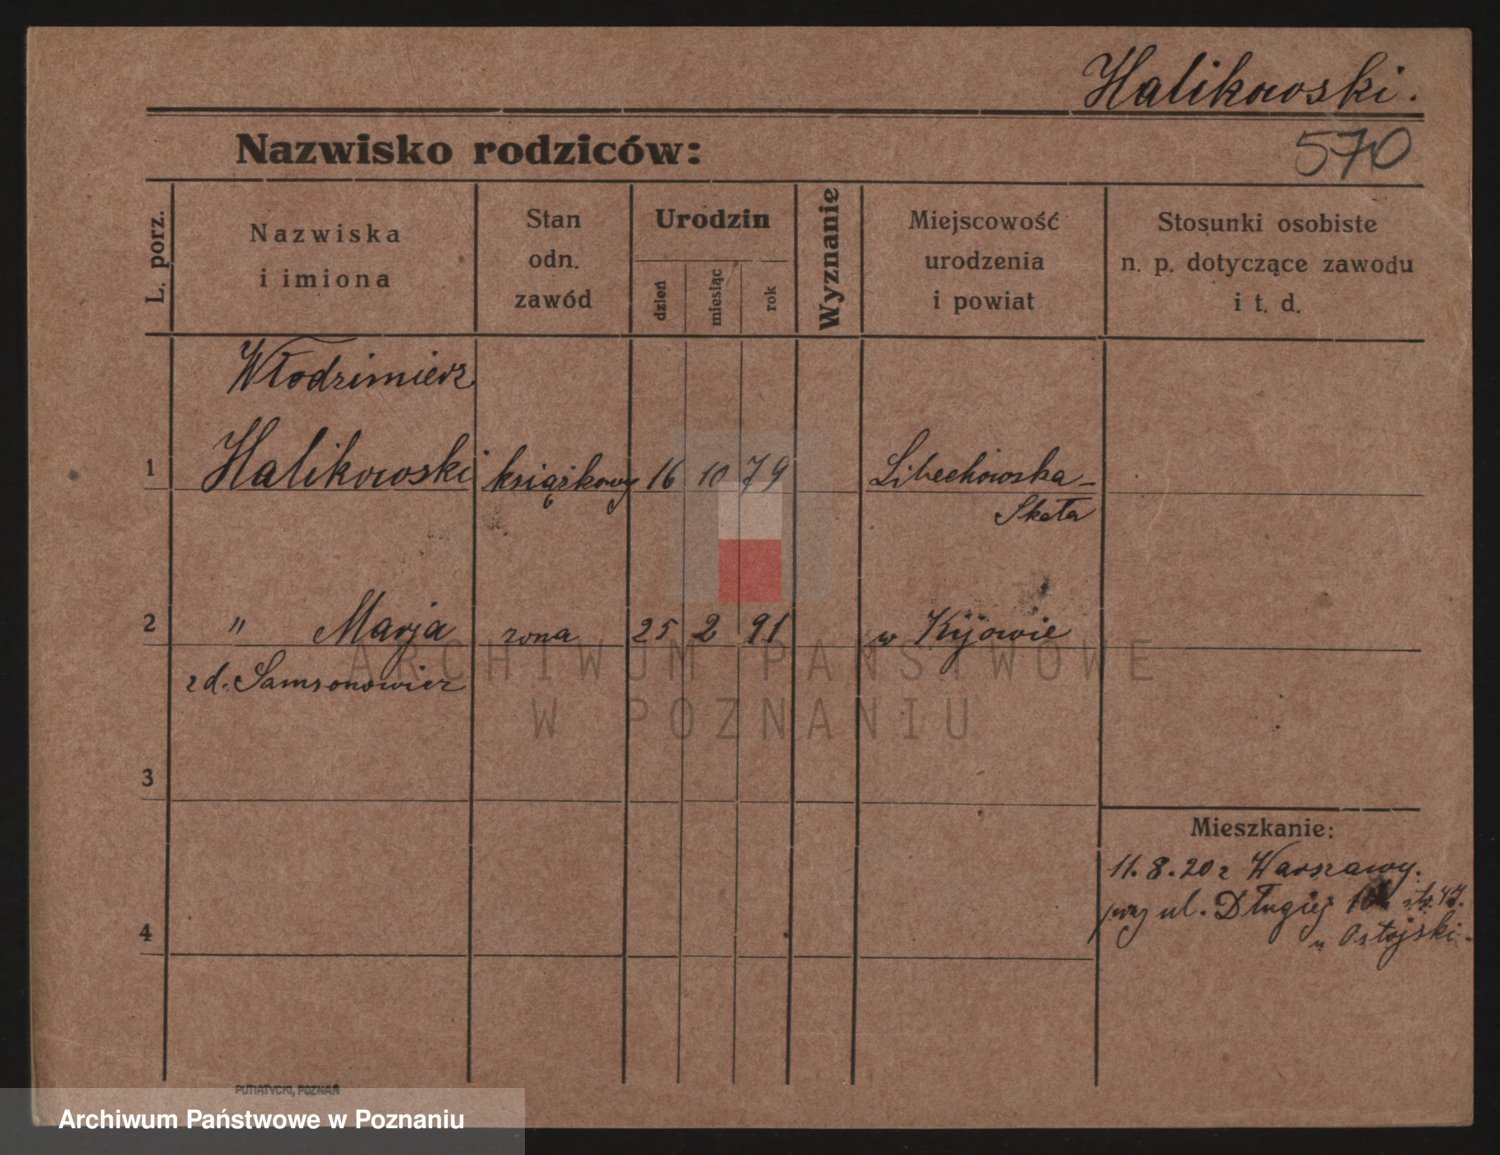 Halikowski.
570
Nazwisko rodziców:
L. porz.
Nazwiska
i imiona
Stan
odn.
zawód
Urodzin
dzień
miesiąc
rok
Wyznanie
Miejscowość
urodzenia
i powiat
Stosunki osobiste
n. p. dotyczące zawodu
i t. d.
Włodzimierz
1 Halikowski książkowy 16 10 79 Libechówska-
Skała
2 " Marja żona 25 2 91 w Kijowie
z d. Samsonowicz
3
4
Mieszkanie:
11.8.20 z Warszawy.
przy ul. Długiej
u Ostojski.
ARCHIWUM PAŃSTWOWE
W POZNANIU
PUTIATYCKI, POZNAŃ
Archiwum Państwowe w Poznaniu